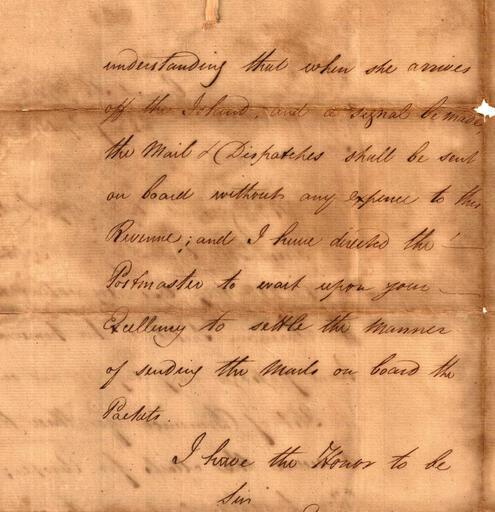 understanding that when she arrives
off the Island, and a signal be made
the Mail & Dispatches shall be sent
on board without any expence to this
Revenue; and I have directed the
Postmaster to wait upon your
Excellency to settle the Manner
of sending the Mails on board the
Packets.
I have the Honor to be
Sir